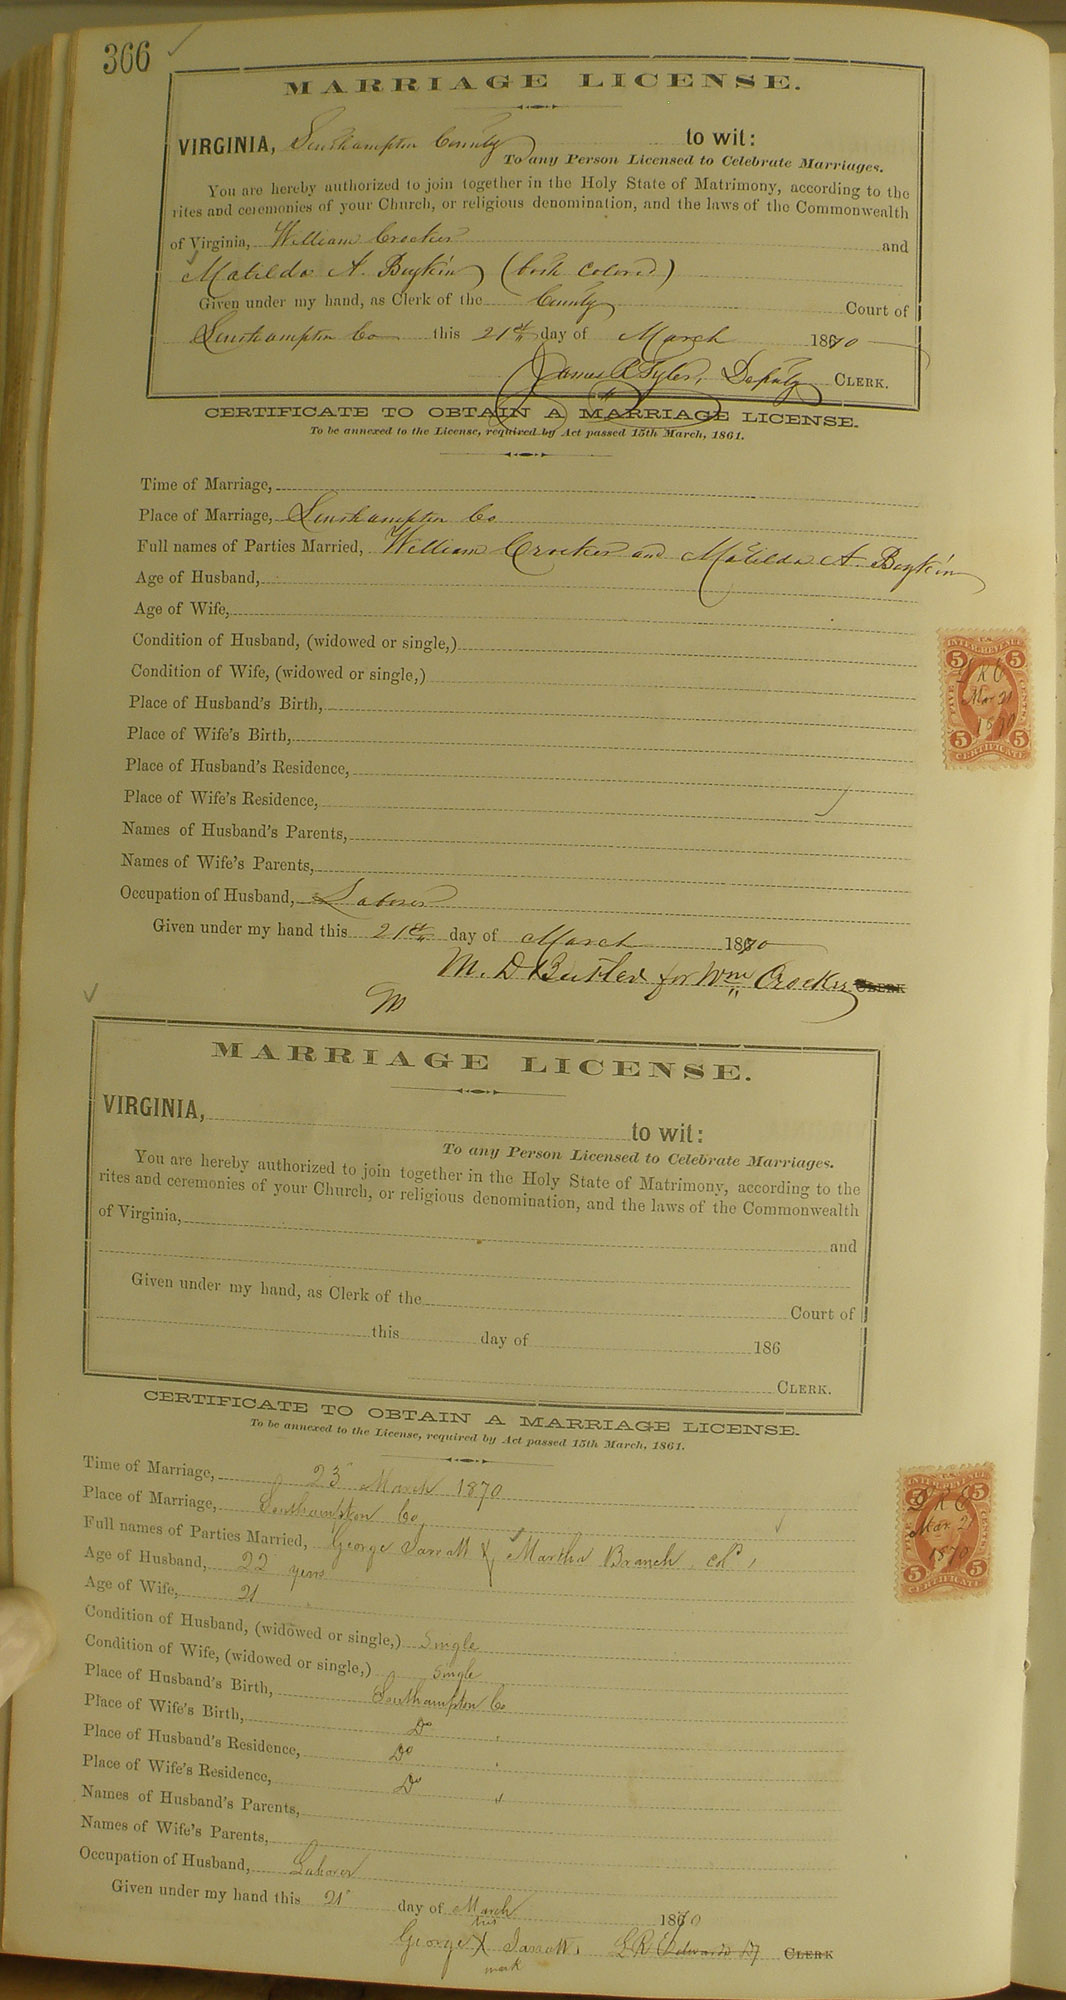 366
MARRIAGE LICENSE.
VIRGINIA, Southampton County to wit:
To any Person Licensed to Celebrate Marriages.
You are hereby authorized to join together in the Holy State of Matrimony, according to the
rites and ceremonies of your Church, or religious denomination, and the laws of the Commonwealth
of Virginia, William Crocker and
Matilda A. Boykin (both colored)
Given under my hand, as Clerk of the County Court of
Southampton Co this 21st day of March 1870
James R Tyler, Deputy CLERK.
CERTIFICATE TO OBTAIN A MARRIAGE LICENSE.
To be annexed to the License, required by Act passed 15th March, 1861.
Time of Marriage,
Place of Marriage, Southampton Co
Full names of Parties Married, William Crocker and Matilda A. Boykin
Age of Husband,
Age of Wife,
Condition of Husband, (widowed or single,)
Condition of Wife, (widowed or single,)
Place of Husband's Birth,
Place of Wife's Birth,
Place of Husband's Residence,
Place of Wife's Residence,
Names of Husband's Parents,
Names of Wife's Parents,
Occupation of Husband, Laborer
Given under my hand this 21st day of March 1870
M. D. Butler for Wm Crocker CLERK
U.S.
INTER. REVENUE
5 5
FIVE CENTS
Mar 21
1870
5 5
CERTIFICATE
MARRIAGE LICENSE.
VIRGINIA, to wit:
To any Person Licensed to Celebrate Marriages.
You are hereby authorized to join together in the Holy State of Matrimony, according to the
rites and ceremonies of your Church, or religious denomination, and the laws of the Commonwealth
of Virginia, and
Given under my hand, as Clerk of the Court of
this day of 186
CLERK.
CERTIFICATE TO OBTAIN A MARRIAGE LICENSE.
To be annexed to the License, required by Act passed 15th March, 1861.
Time of Marriage, 23 March 1870
Place of Marriage, Southampton Co
Full names of Parties Married, George Jarratt & Martha Branch cold,
Age of Husband, 22 years
Age of Wife, 21
Condition of Husband, (widowed or single,) Single
Condition of Wife, (widowed or single,) Single
Place of Husband's Birth, Southampton Co
Place of Wife's Birth, Do
Place of Husband's Residence, Do
Place of Wife's Residence, Do
Names of Husband's Parents,
Names of Wife's Parents,
Occupation of Husband, Laborer
Given under my hand this 21 day of March 1870
his
George X Jarratt L R Edwards CLERK
mark
5 5
FIVE CENTS
Mar. 21
1870
5 5
CERTIFICATE